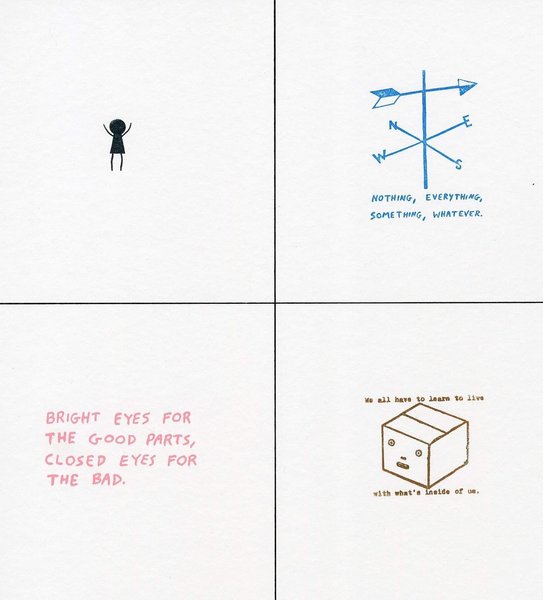 N
E
W
S
NOTHING, EVERYTHING,
SOMETHING, WHATEVER.
BRIGHT EYES FOR
THE GOOD PARTS,
CLOSED EYES FOR
THE BAD.
We all have to learn to live
with what's inside of us.